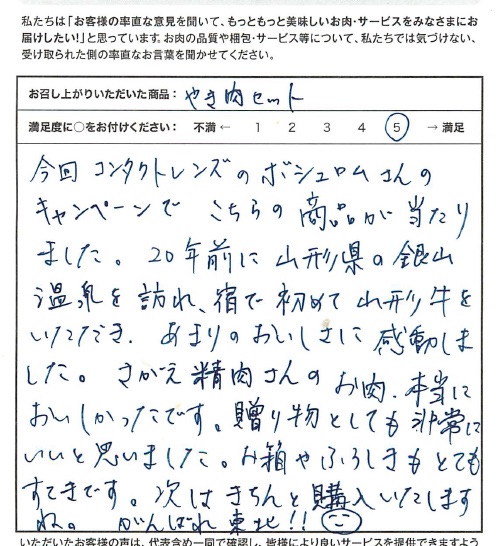 私たちは「お客様の率直な意見を聞いて、もっともっと美味しいお肉・サービスをみなさまにお
届けしたい!」と思っています。お肉の品質や梱包・サービス等について、私たちでは気づけない、
受け取られた側の率直なお言葉を聞かせてください。
お召し上がりいただいた商品： やき肉セット
満足度に○をお付けください： 不満 ← 1 2 3 4 5 → 満足
今回 コンタクトレンズの ボシュロムさんの
キャンペーンで こちらの 商品が 当たり
ました。20年前に 山形県の 銀山
温泉を 訪れ、宿で 初めて 山形牛を
いただき、あまりのおいしさに 感動しま
した。さがえ精肉さんの お肉、本当に
おいしかったです。贈り物としても 非常に
いいと思いました。お箱やふろしきも とても
すてきです。次は きちんと 購入いたします
ね。がんばれ 東北!!
いただいたお客様の声は、代表含め一同で確認し、皆様により良いサービスを提供できますよう